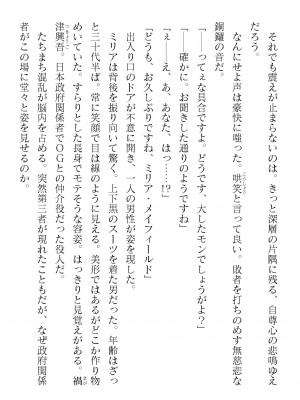 それでも震えが止まらないのは、きっと深層の片隅に残る、自尊心の悲鳴ゆえ
だろう。
なんにせよ声は豪快に嗤った。哄笑と言って良い。敗者を打ちのめす無慈悲な
銅鑼の音だ。
「――ってな具合ですよ。どうです、大したモンでしょうがよ?」
「――確かに。お聞きした通りのようですね」
「ぇ――え、あ、あなた、はっ……!?」
「どうも、お久しぶりですね、ミリア・メイフィールド」
出入り口のドアが不意に開き、一人の男性が姿を現した。
ミリアは背後を振り向いて驚く。上下黒のスーツを着た男だった。年齢はざっ
と三十代半ば。常に笑顔で目は線のように見える。美形ではあるがどこか作り物
めいていた。すらりとした長身でモテそうな容姿。はっきりと見覚えがある。禍
津興吾。日本政府関係者でOGとの仲介役だった役人だ。
たちまち混乱が脳内を占める。突然第三者が現れたこともだが、なぜ政府関係
者がこの場に堂々と姿を見せるのか。